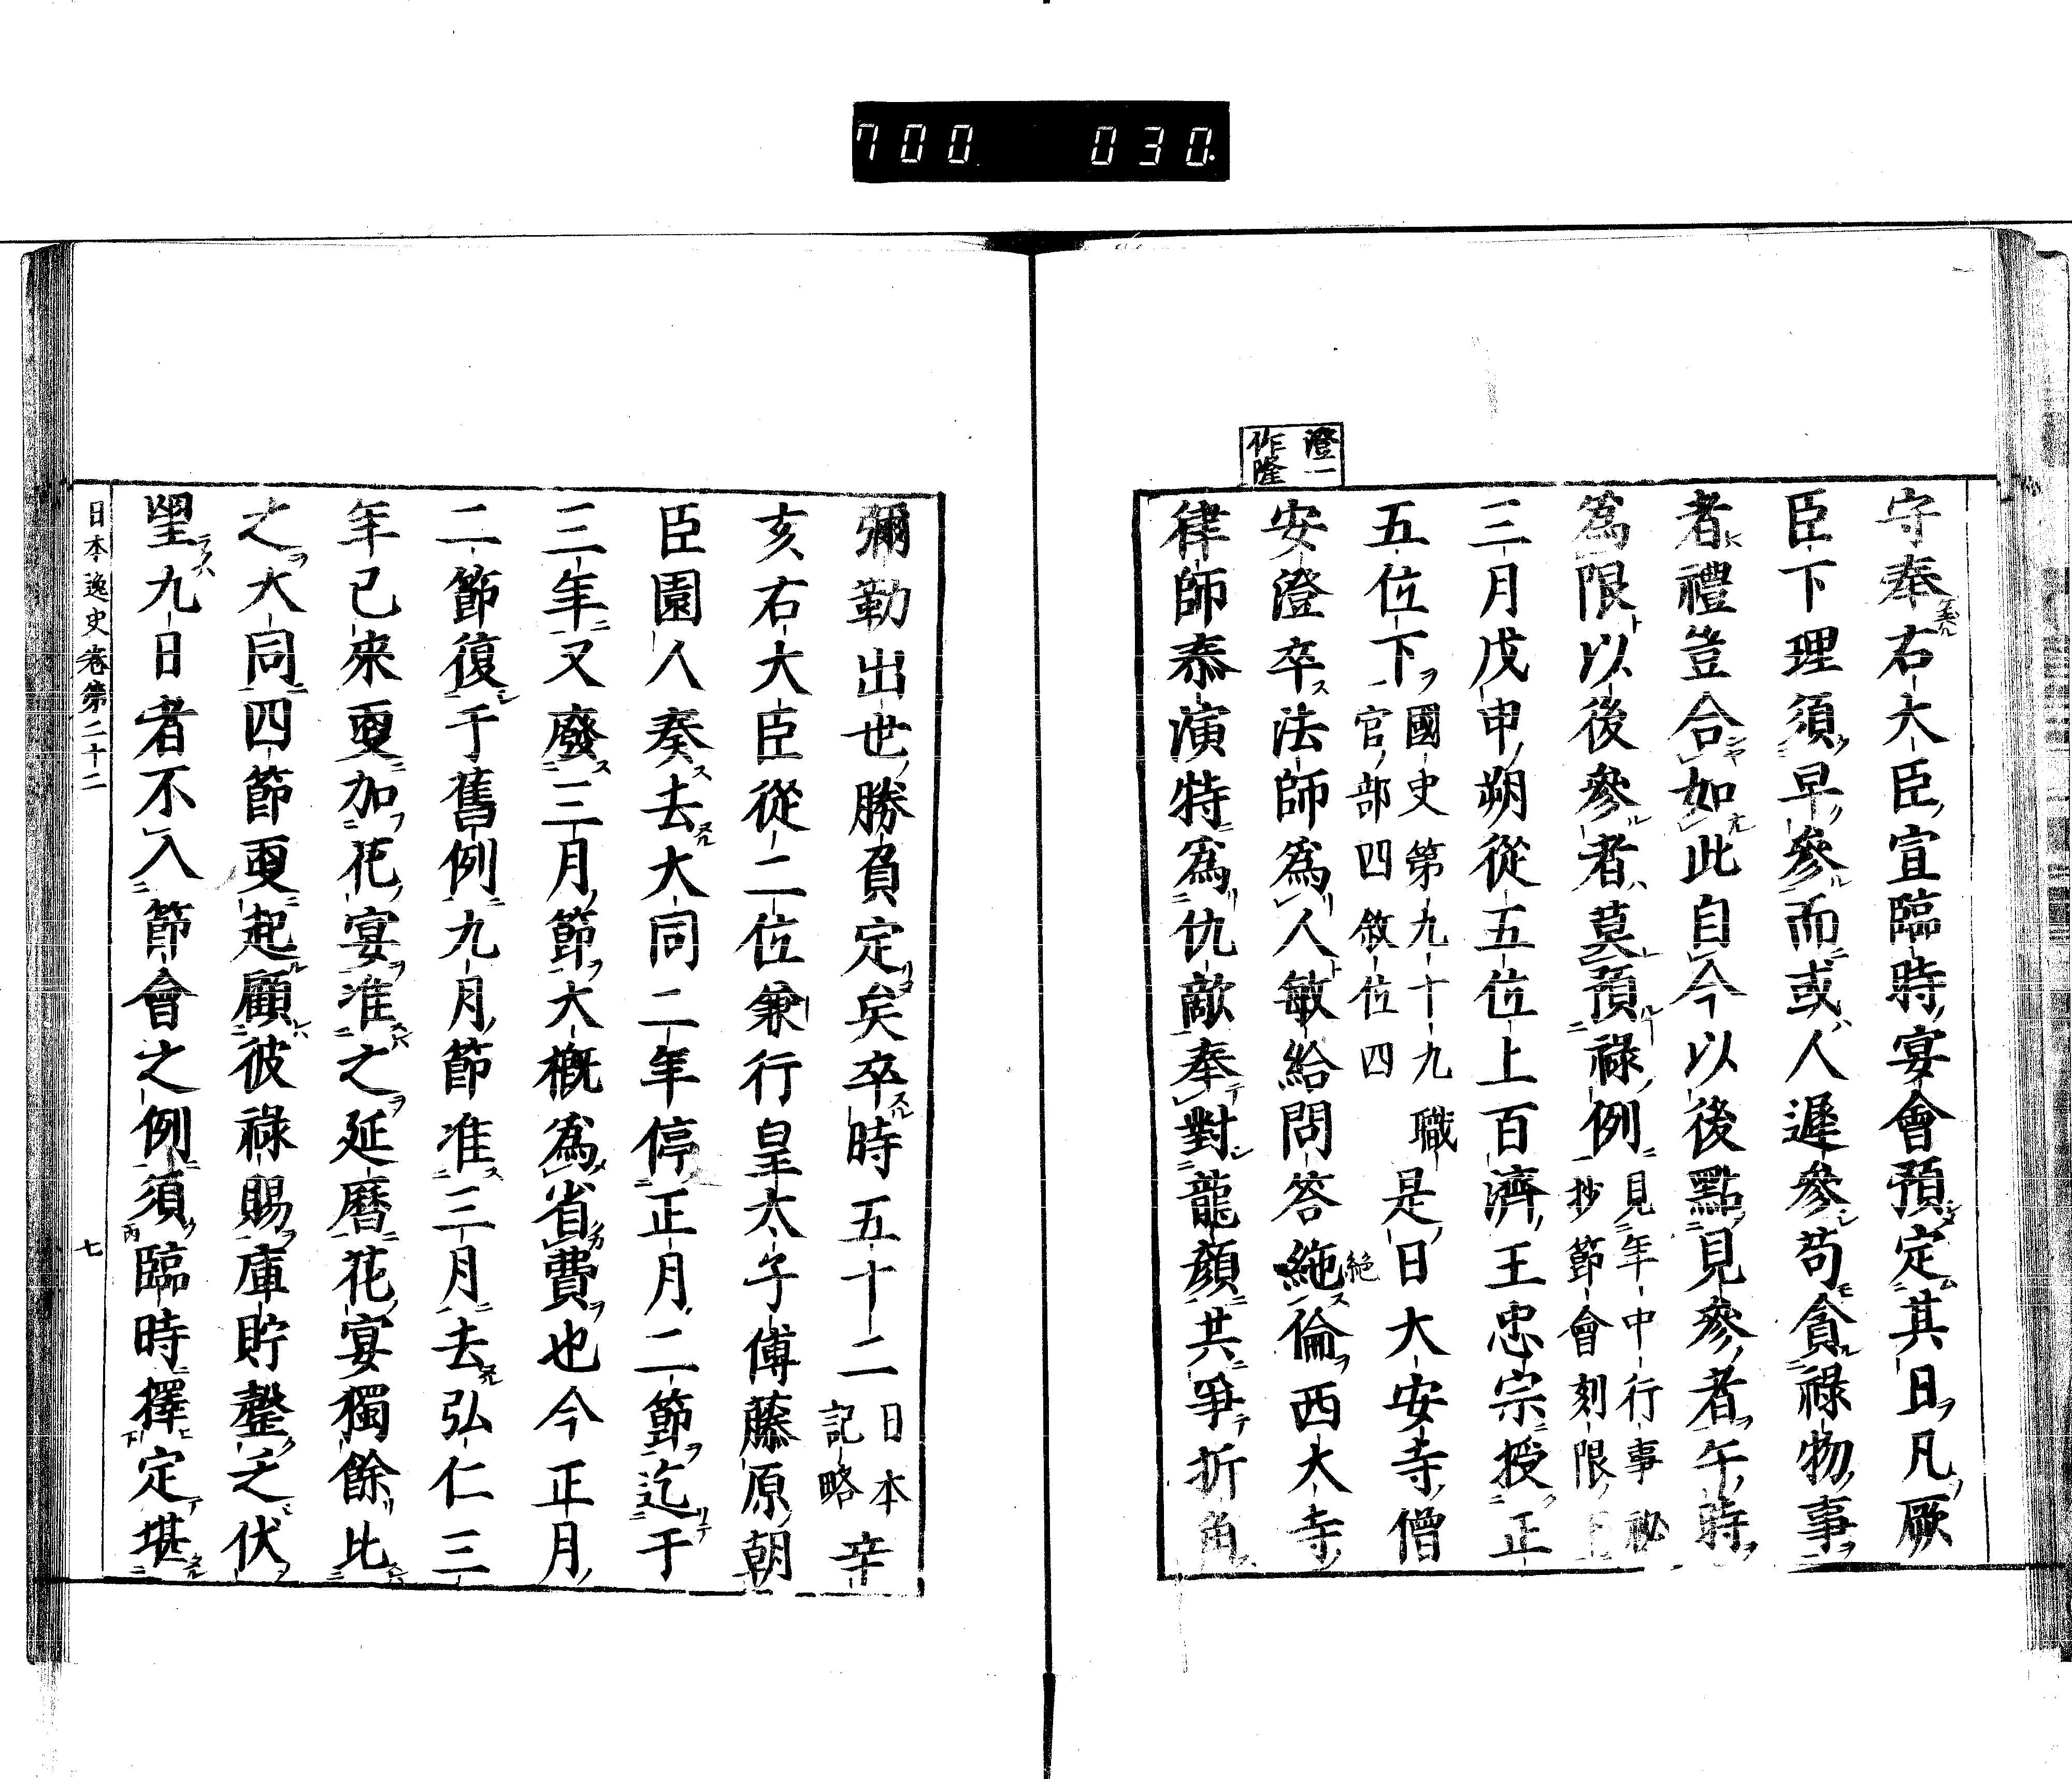 700 030
澄一
作隆
守奉右大臣宣臨時宴會預定其日凡厥
臣下理須早參而或人遲參苟貪祿物事
者禮豈合如此自今以後點見參者午時
爲限以後參者莫預祿例見年中行事秘
抄節會刻限上
三月戊申朔從五位上百濟王忠宗授正
五位下國史第九十九職
官部四敘位四是日大安寺僧
安澄卒法師爲人敏給問答絁倫西大寺
絕
律師泰演特爲仇敵奉對龍顏共爭折角
彌勒出世勝負定矣卒時五十二日本
記略辛
亥右大臣從二位兼行皇太子傅藤原朝
臣園人奏去大同二年停正月二節迄于
三年又廢三月節大概爲省費也今正月
二節復于舊例九月節准三月去弘仁三
年已來更加花宴准之延曆花宴獨餘比
之大同四節更起顧彼祿賜庫貯罄乏伏
望九日者不入節會之例須臨時擇定堪
日本逸史卷第二十二 七